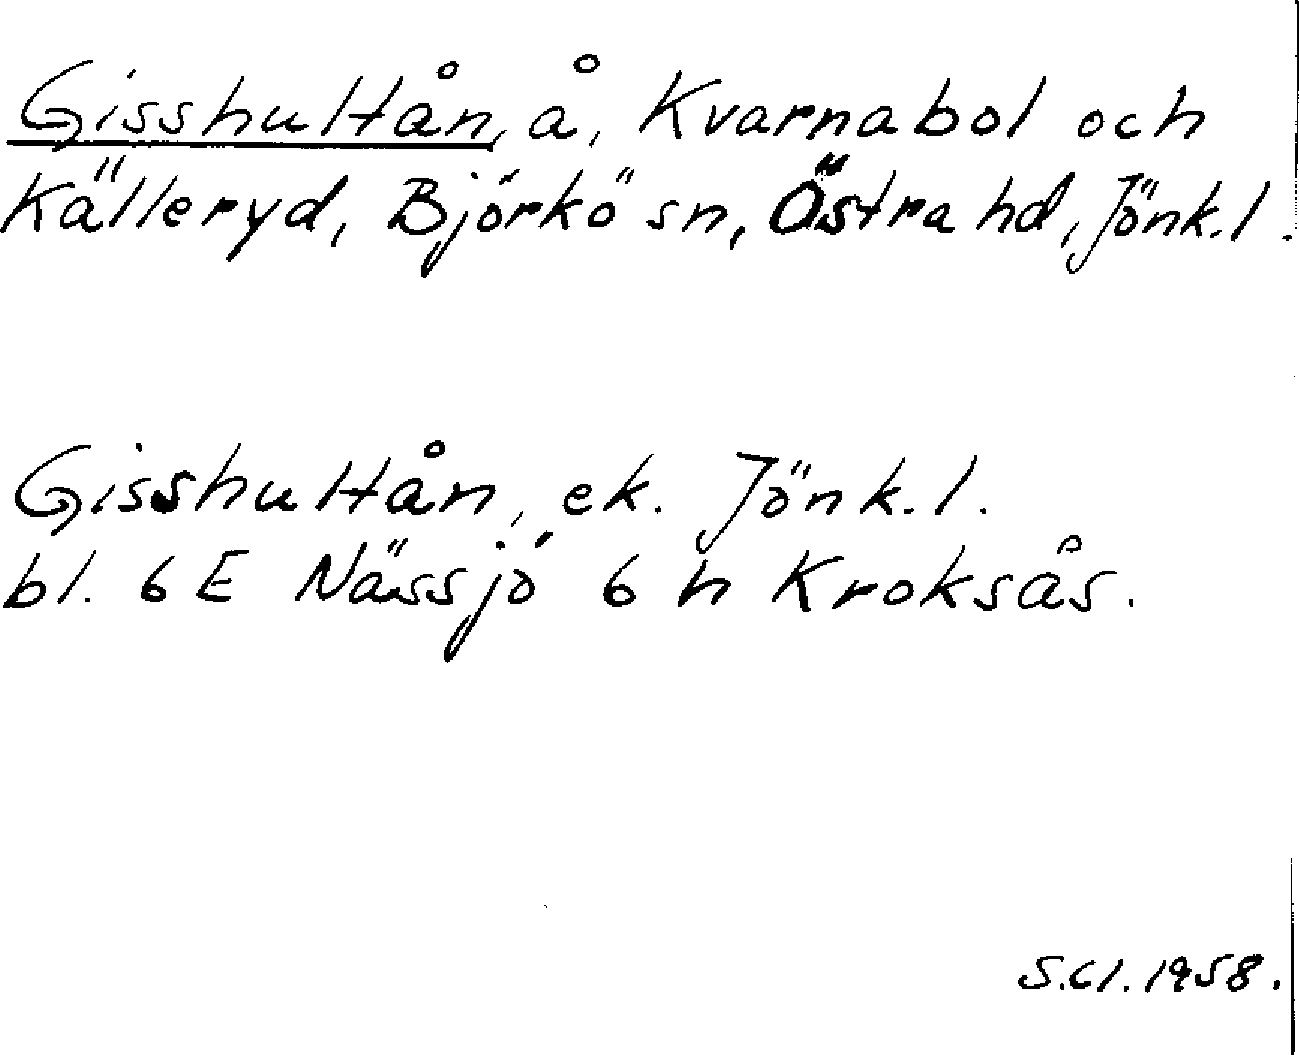 Gisshultån, å, Kvarnabol och
Källeryd, Björkö sn, Östra hd, Jönk.l.
Gisshultån, ek. Jönk.l.
bl. 6 E Nässjö 6 h Kroksås.
S.Cl. 1958.